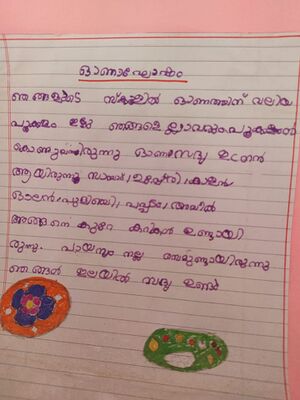 ഓണാഘോഷം
ഞങ്ങളുടെ സ്കൂളിൽ ഓണത്തിന് വലിയ
പൂക്കളം ഇട്ടു ഞങ്ങളെല്ലാവരും പൂക്കൾ
കൊണ്ടുവന്നിരുന്നു ഓണസദ്യ ഉടൻ
ആയിരുന്നു സാമ്പാർ, കാളൻ,
ഓലൻ, പുളിഞ്ചി, പപ്പടം, അവിൽ
അങ്ങനെ കുറേ കറികൾ ഉണ്ടായി
രുന്നു. പായസം നല്ല ഉണ്ടായിരുന്നു
ഞങ്ങൾ ഇലയിൽ സദ്യ ഉണ്ടു